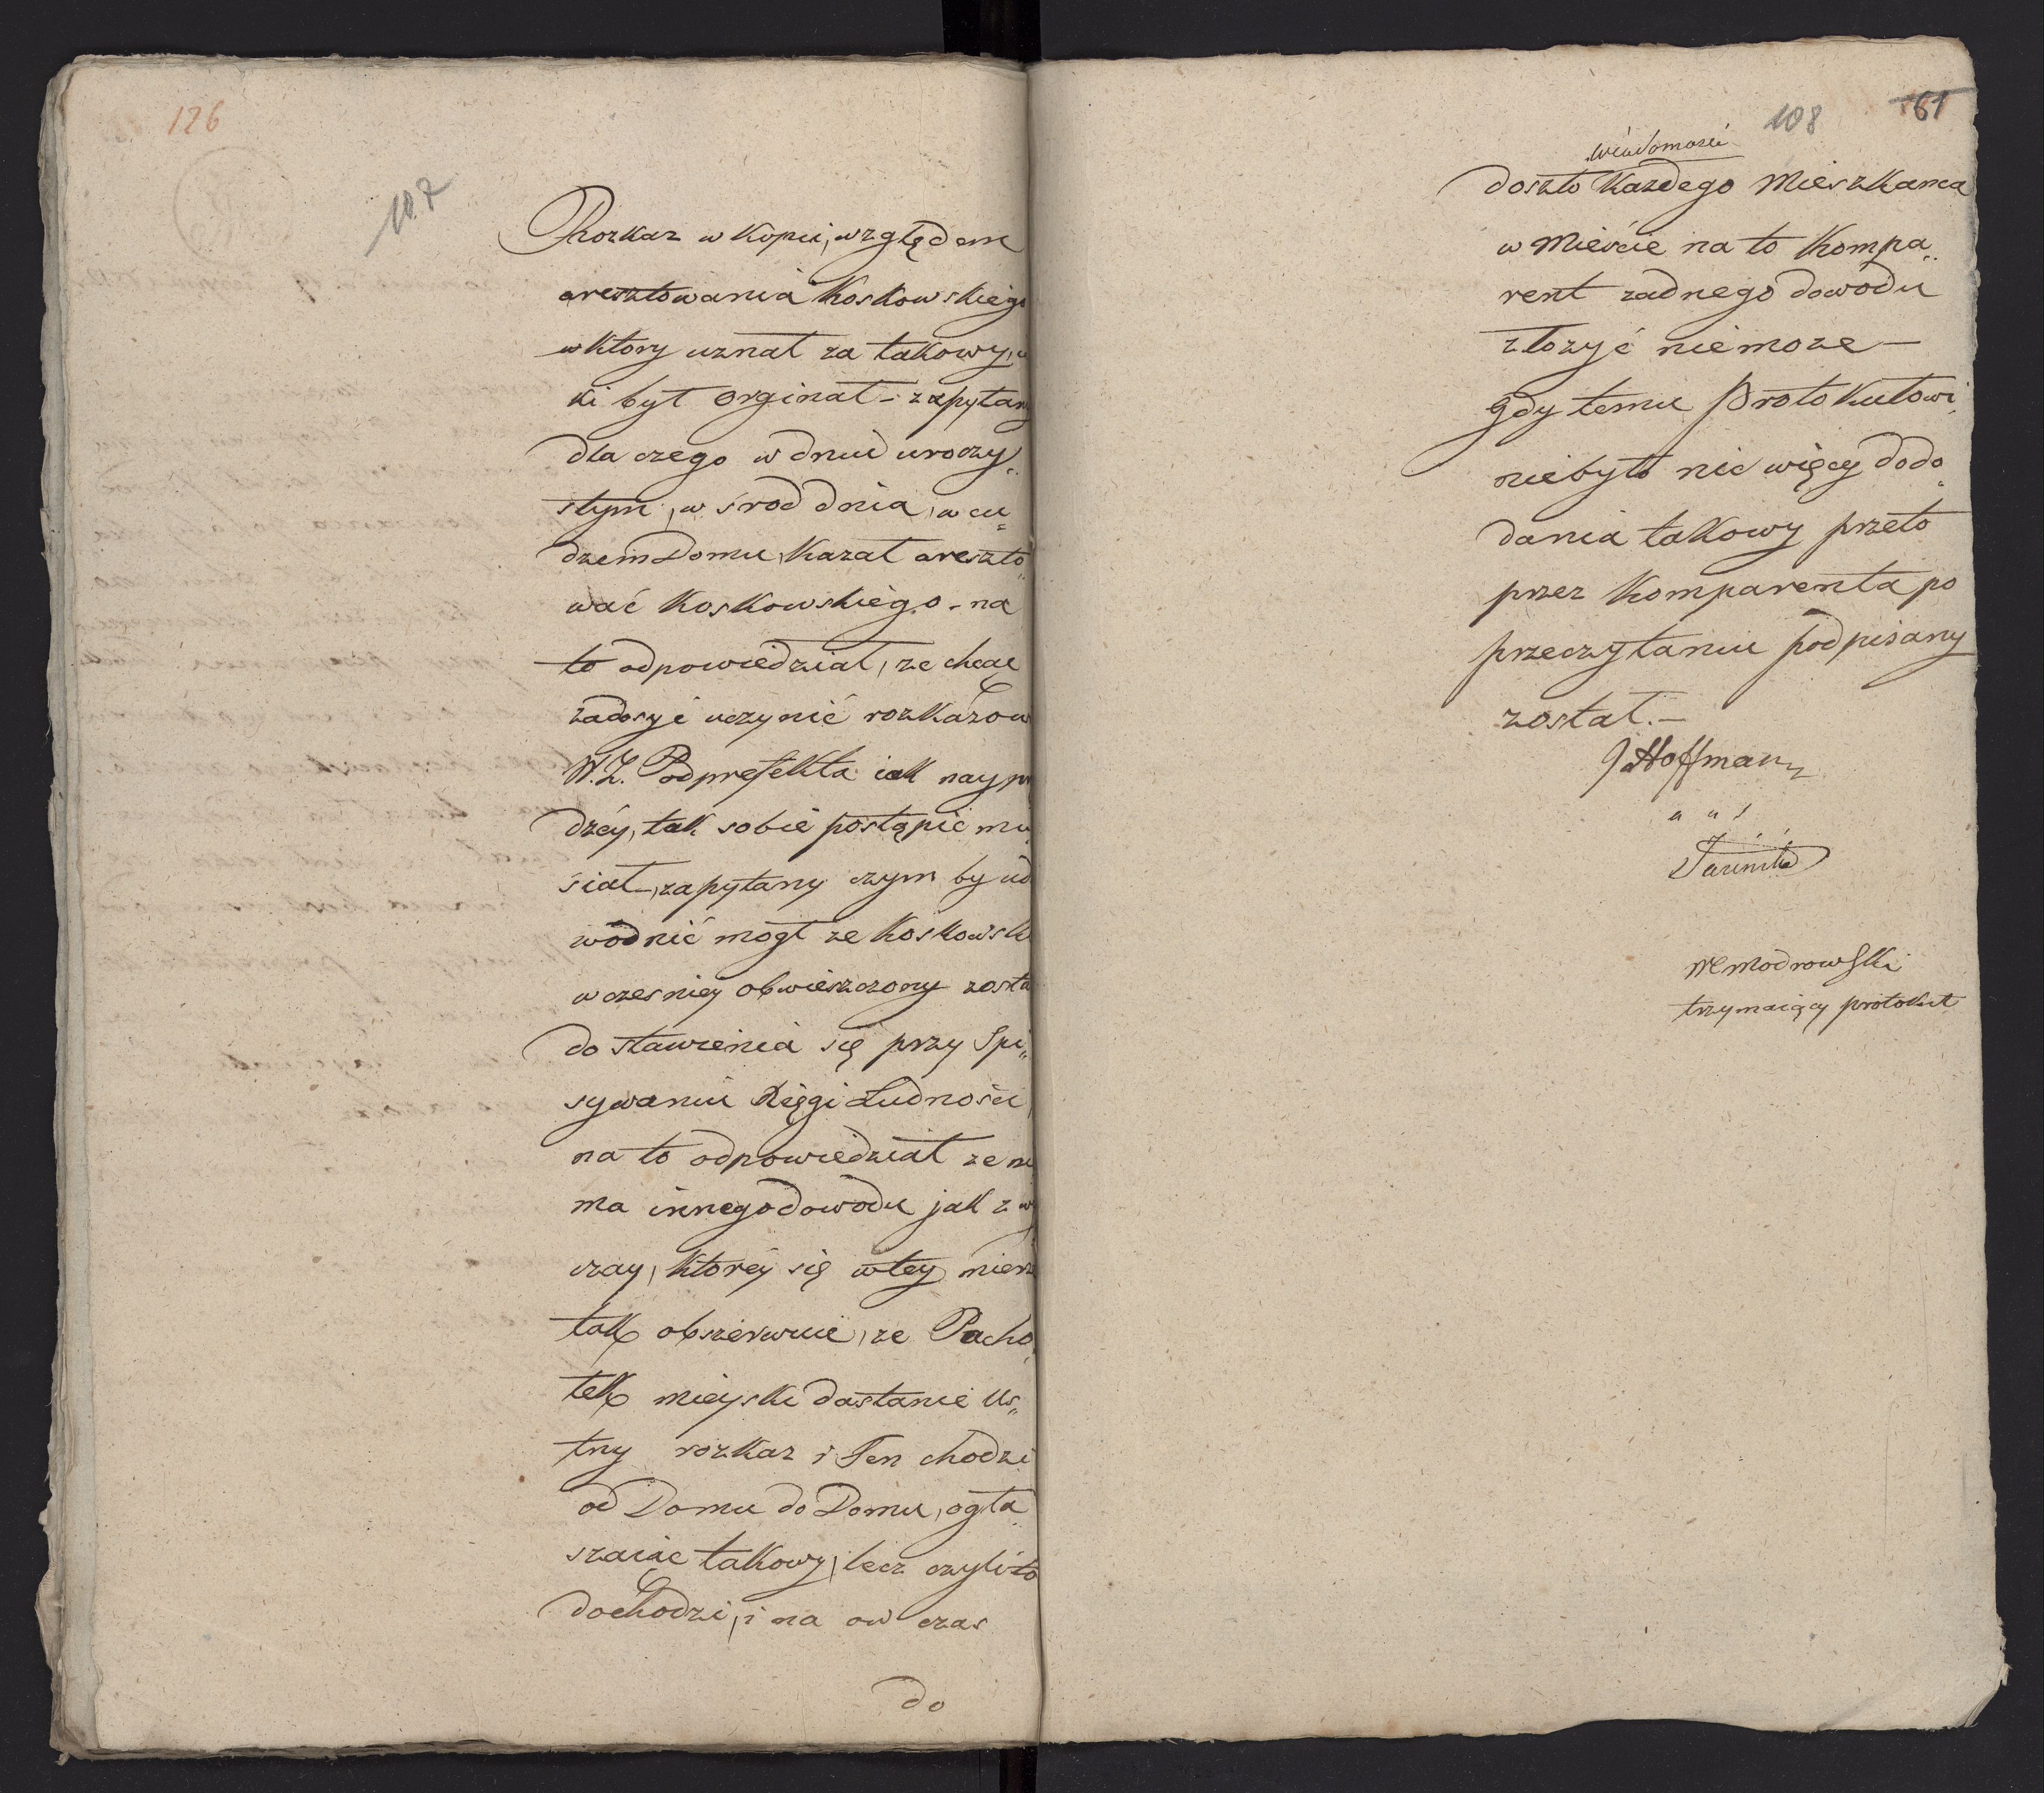 126
107
Rozkaz w Kopii, względem
aresztowania Koskowskiego
w ktory uznał za takowy,
ki był Orginał – zapytany
dla czego w dniu uroczy„
stym, w srod dnia, w cu„
dzem Domu, Kazał areszto„
wać Koskowskiego – na
to odpowiedział, ze chcąc
zadosyć uczynić rozkazow
W. Z. Podprefekta iak nayprę
dzéy, tak sobie postąpić mu„
siał, zapytany czym by ud
wodnić mógł ze Koskowski
wczesniey obwieszczony zosta
do stawienia się przy Spi„
sywaniu Xięgi Ludności,
na to odpowiedział ze nie
ma innego dowodu jak zwy
czay, ktoréy się w tey mierze
tak obszerwuie, ze Pacho„
łek mieyski dostanie Us„
tny rozkaz i Ten chodzi
od Domu do Domu, ogła„
szaiąc takowy, lecz czyli to
dochodzi, i na ow czas
do
108
61
wiadomości
doszło Kazdego Mieszkanca
w Mieście na to Kompa„
rent zadnego dowodu
złozyć niemoze –
gdy temu Protokułowi
niebyło nic więcey dodo„
dania takowy przeto
przez Komparenta po
przeczytaniu podpisany
został. –
J Hoffmann
a u s
Modrowski
trzymaiący protokuł